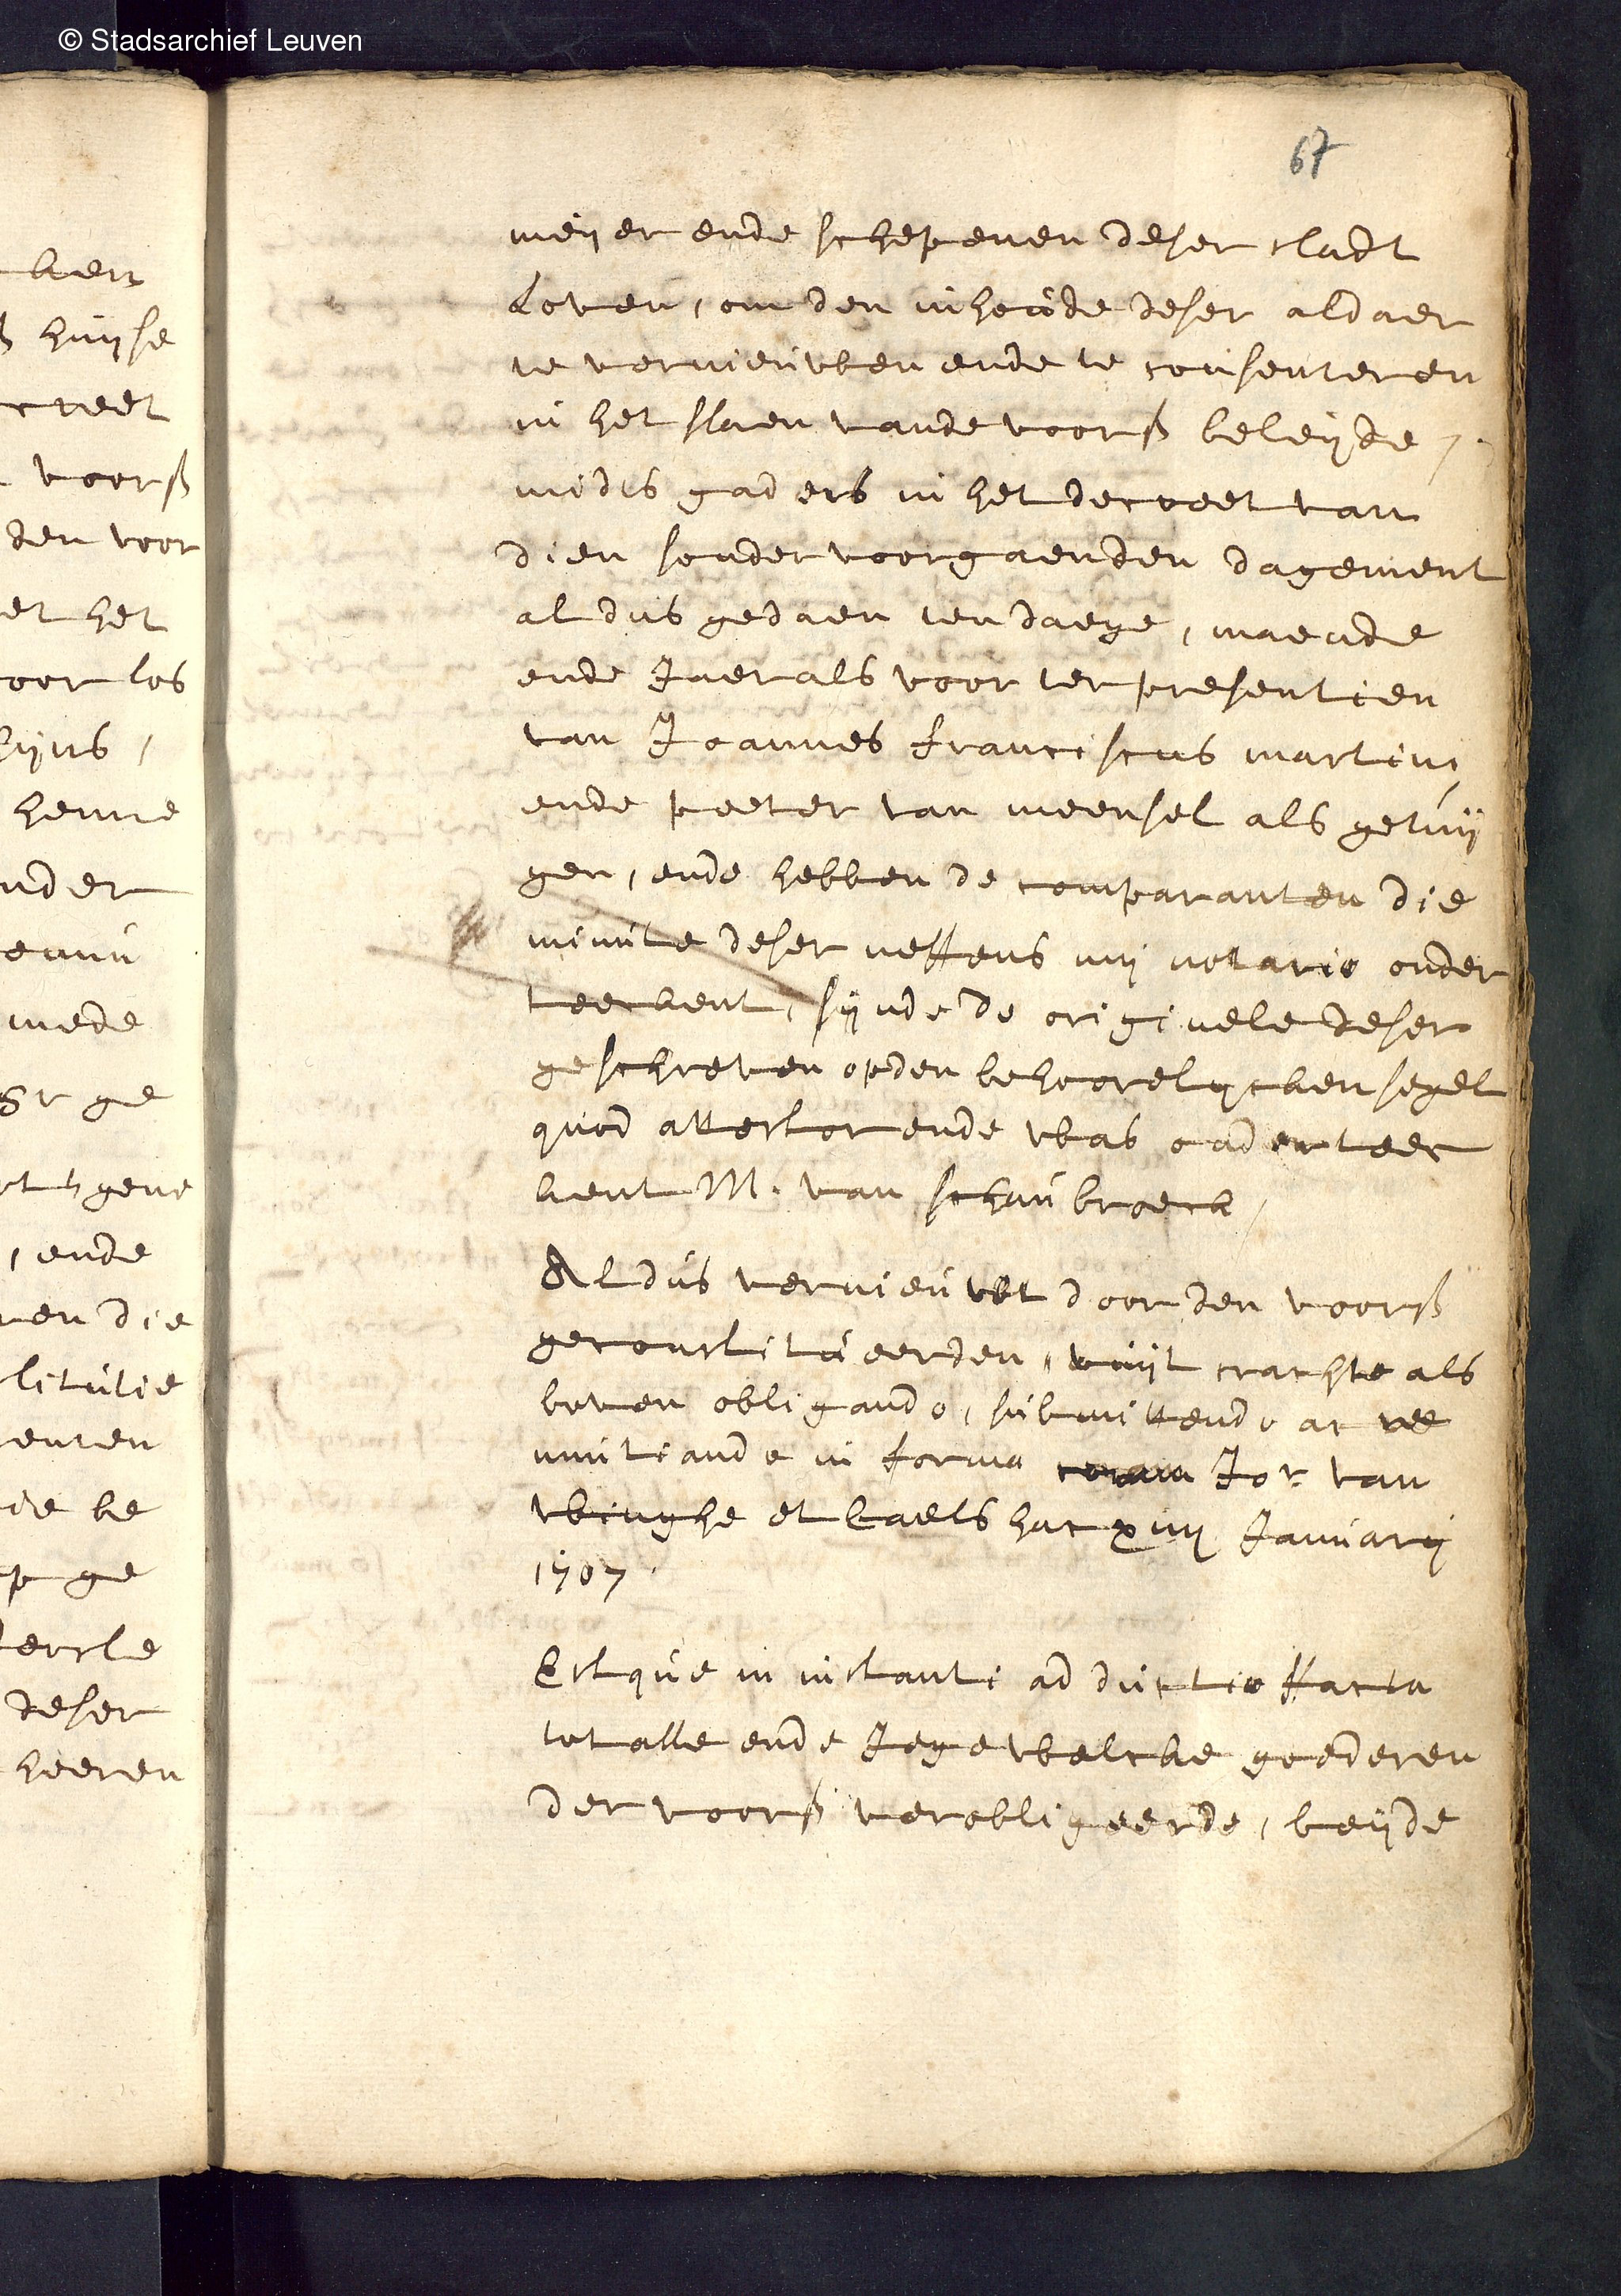 © Stadsarchief Leuven
67
meijer ende schepenen deser stadt
Loven, om den inhoúde deser aldaer
te vernieúwen ende te consenteren
in het slaen vande voorß beleijde,
midts gaders in het decreet van
dien sonder voorgaenden dagement
aldus gedaen ten daege, maende
ende Jaer als voor ter presentien
van Joannes franciscus martini
ende peeter van meensel als getuij
gen, ende hebben de comparanten die
minúte deser neffens mij notario onder
teeckent, sijnde de originele deser
geschreven opden behoorelycken segel
quod attestor ende was onderteec
kent M. van schaúbroeck /
Aldús vernieúwt door den voorß
geconstitúeerden, vuijt crachte als
boven obligando, súbmittendo ac re
nuntiando in forma coram Jor van
winghe et baels hac xiiij Januarij
1707.
Estque in instanti adductio facta
tot alle ende Jegewelcke goederen
der voorß verobligeerde, beijde
ken
ß huijse
creet
voorß
den voor
et het
oor los
hijns,
henne
nder
mede
ge
, ende
die
litutie
enten
de be
p ge
deser
heeren